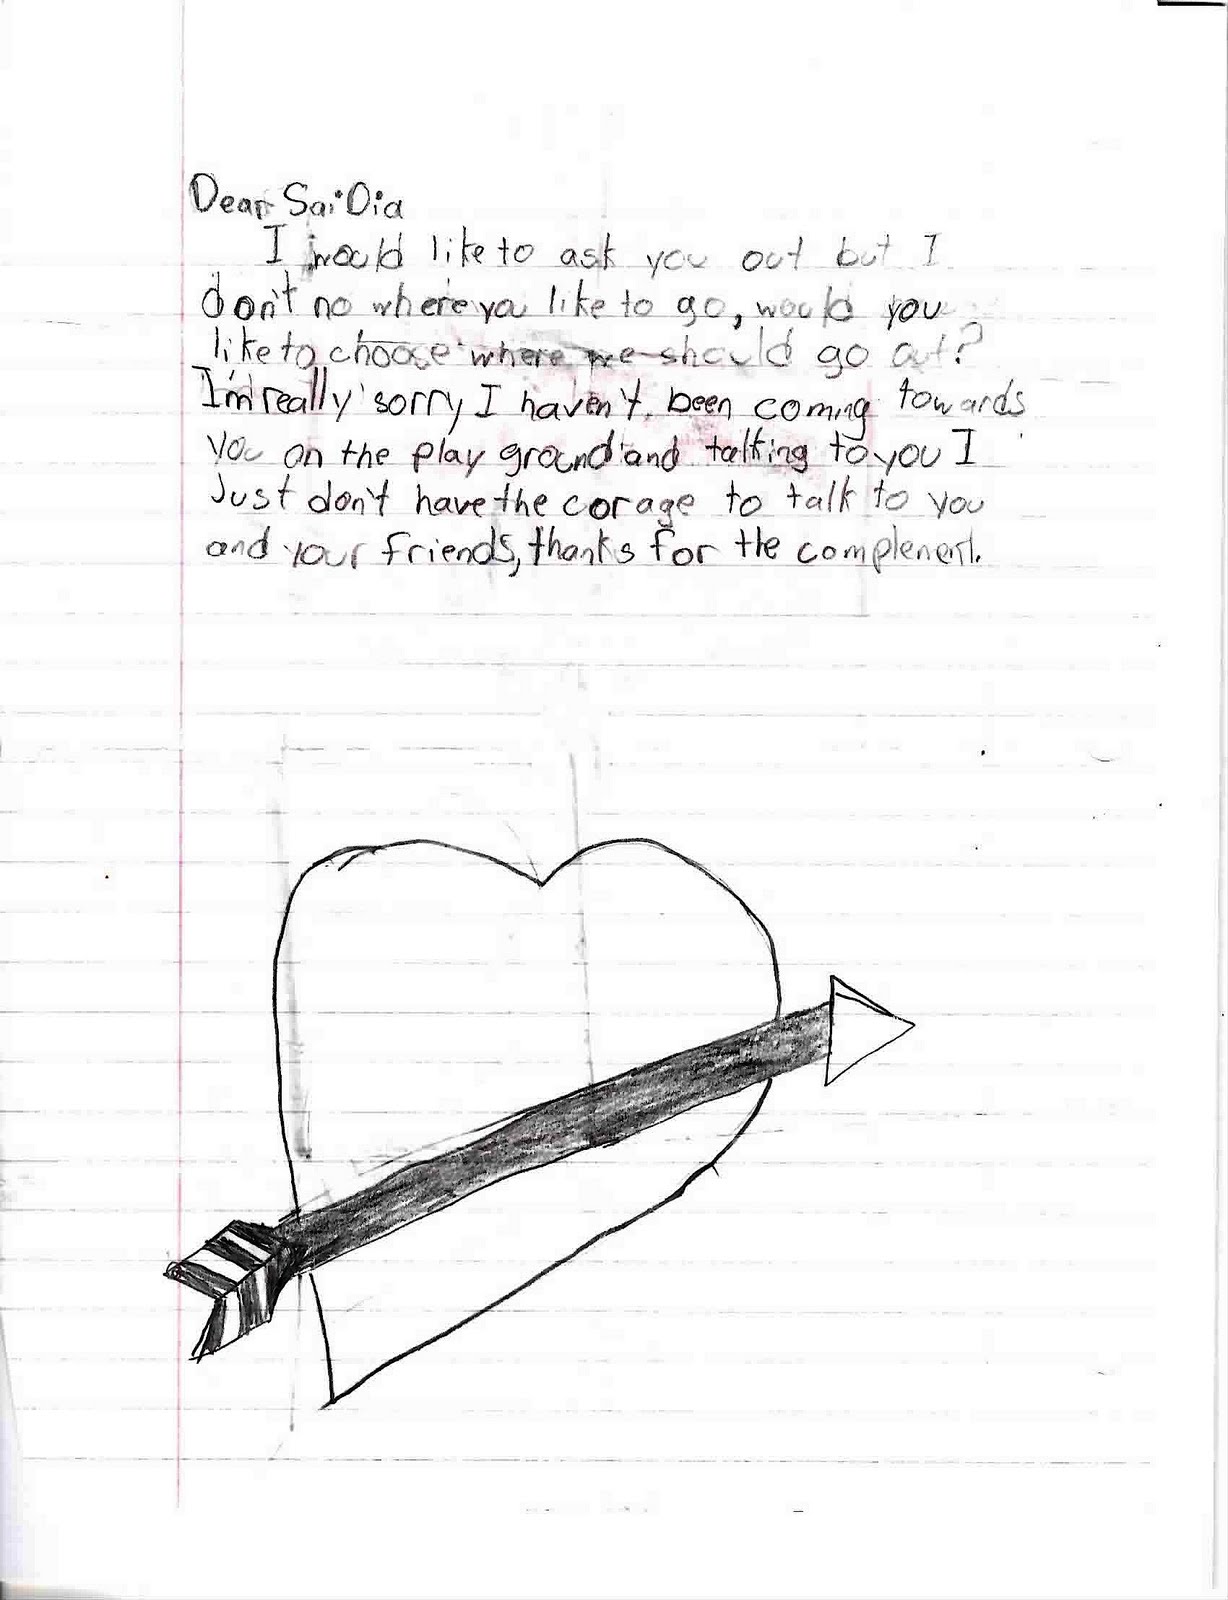 Dear Sai Dia
I would like to ask you out but I
don't no where you like to go, would you
like to choose where we should go out?
I'm really sorry I haven't been coming towards
you on the play ground and talking to you I
Just don't have the corage to talk to you
and your friends, thanks for the complement.